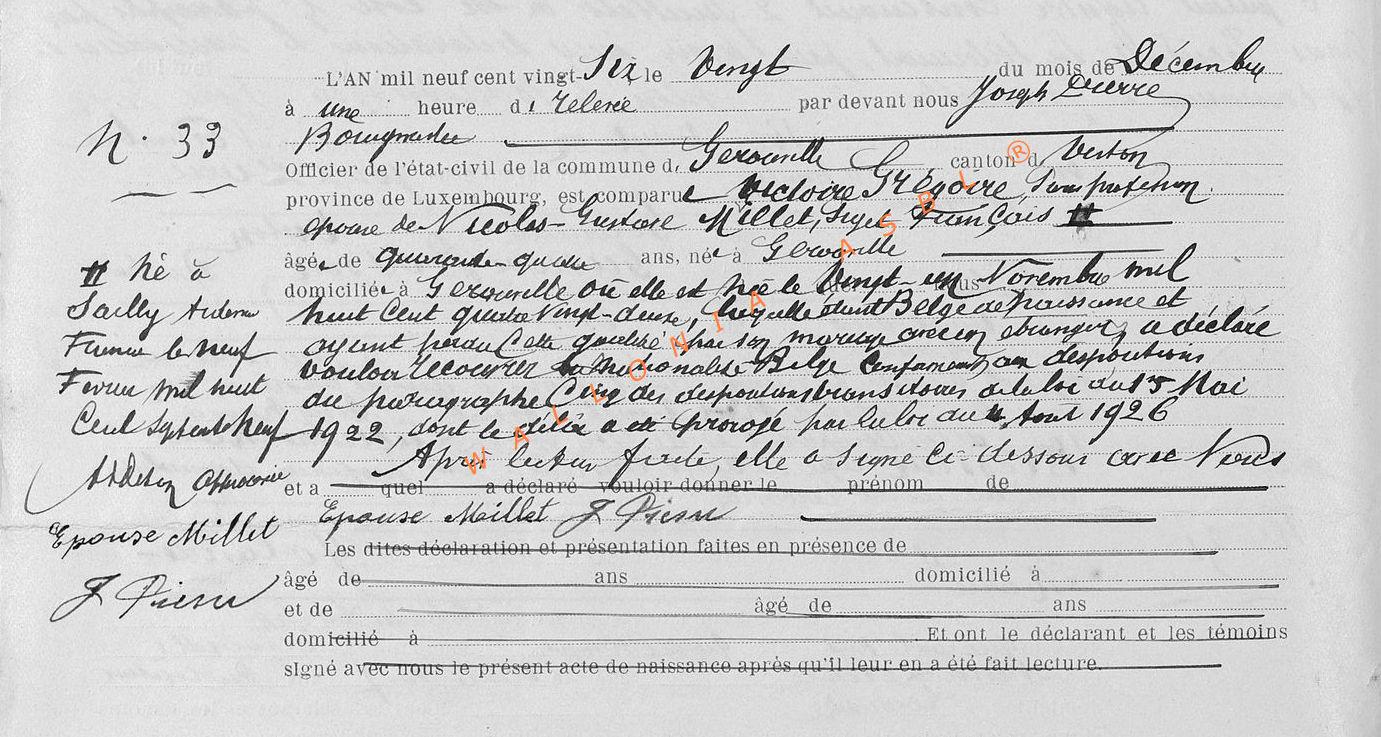 L'AN mil neuf cent vingt-Six le Vingt du mois de Décembre
à une heure de relevée par devant nous Joseph Pierre
N. 33
Bourgmestre
Officier de l'état-civil de la commune de Gerouville canton de Virton
province de Luxembourg, est comparue Victoire Grégoire, Sans profession
épouse de Nicolas-Gustave Millet, Sujet Français #
âgée de quarante-quatre ans, née à Gerouville
domiciliée à Gerouville où elle est née le Vingt-un Novembre mil
huit Cent quatre Vingt-deux, laquelle étant Belge de naissance et
ayant perdu Cette qualité par son mariage avec un étranger, a déclaré
vouloir recouvrer la nationalité Belge Conformément aux dispositions
du paragraphe Cinq des dispositions transitoires de la loi du 15 Mai
1922, dont le délai a été prorogé par la loi du 4 Aout 1926
Après lecture faite, elle a signé Ci-dessous avec Nous
et a quel a déclaré vouloir donner le prénom de
Epouse Millet J Pierre
Les dites déclaration et présentation faites en présence de
âgé de ans domicilié à
et de âgé de ans
domicilié à Et ont le déclarant et les témoins
signé avec nous le présent acte de naissance après qu'il leur en a été fait lecture.
# Né à
Sailly Ardennes
France le Neuf
Fevrier mil huit
Cent Septante Neuf
Addition approuvée
Epouse Millet
J Pierre
WALLONIA ASBL ®